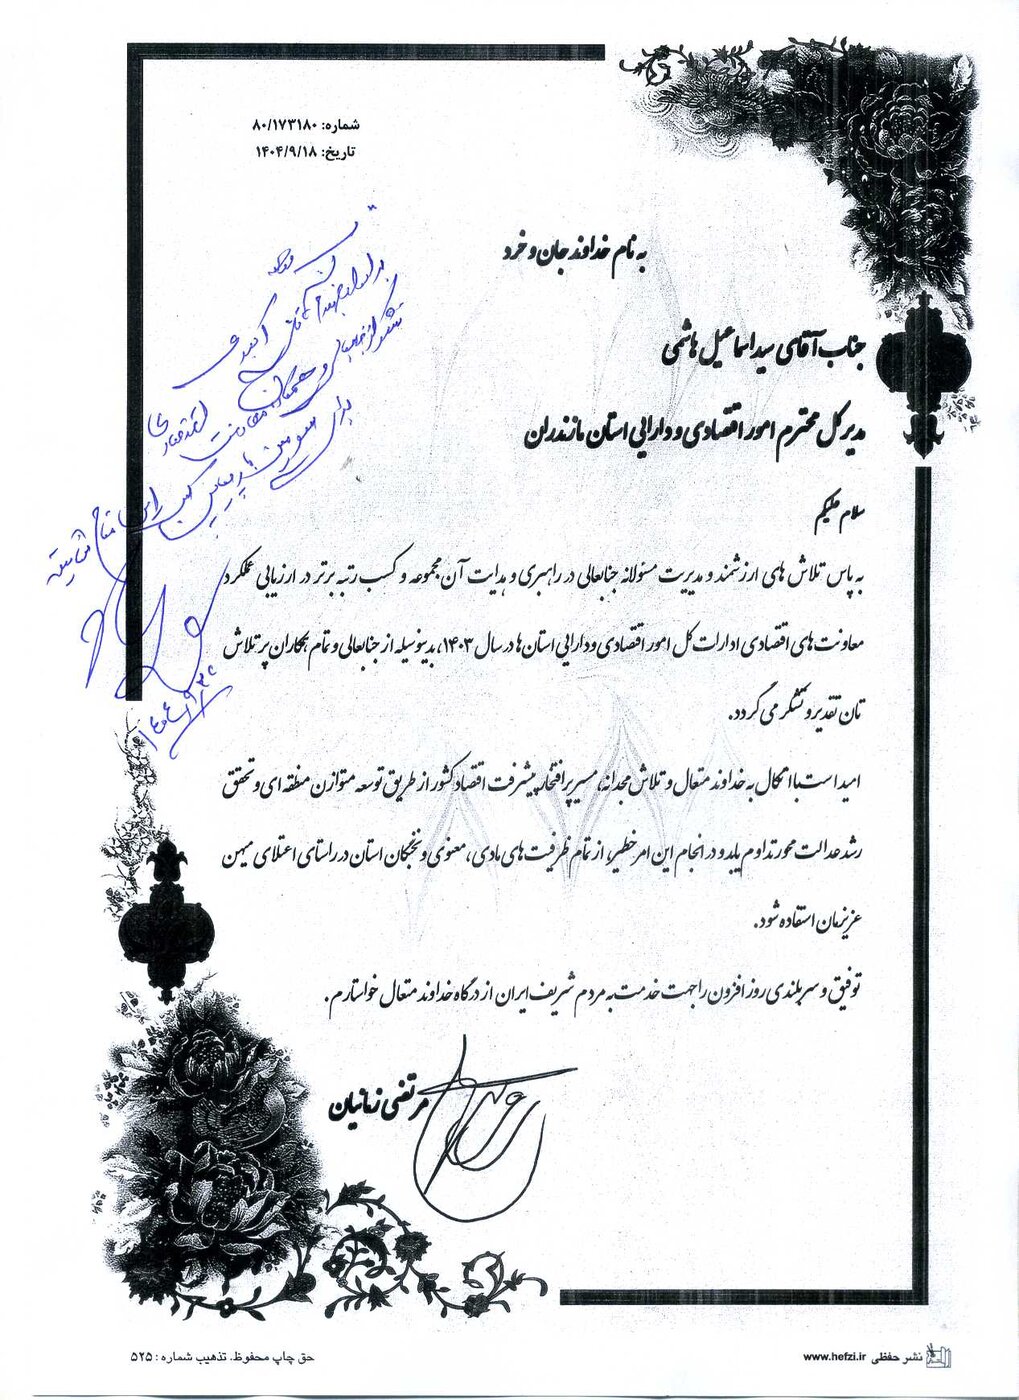 شماره: ۸۰/۱۷۳۱۸۰
تاریخ: ۱۴۰۴/۹/۱۸
به نام خداوند جان و خرد
جناب آقای سید اسماعیل هاشمی
مدیر کل محترم امور اقتصادی و دارایی استان مازندران
سلام علیکم
به پاس تلاش های ارزشمند و مدیریت مسئولانه جنابعالی در راهبری و هدایت آن مجموعه و کسب رتبه برتر در ارزیابی عملکرد
معاونت های اقتصادی ادارات کل امور اقتصادی و دارایی استان ها در سال ۱۴۰۳، بدینوسیله از جنابعالی و تمام همکاران پر تلاش
تان تقدیر و تشکر می گردد.
امید است با اتکال به خداوند متعال و تلاش مجدانه، مسیر پر افتخار پیشرفت اقتصاد کشور از طریق توسعه متوازن منطقه ای و تحقق
رشد عدالت محور تداوم یابد و در انجام این امر خطیر، از تمام ظرفیت های مادی، معنوی و نخبگان استان در راستای اعتلای میهن
عزیزمان استفاده شود.
توفیق و سربلندی روز افزون را جهت خدمت به مردم شریف ایران از درگاه خداوند متعال خواستارم.
مرتضی زمانیان
اکبری
همکاران معاونت اقتصادی
برای کسب این مقام شایسته
حق چاپ محفوظ. تذهیب شماره: ۵۲۵
نشر حفظی www.hefzi.ir